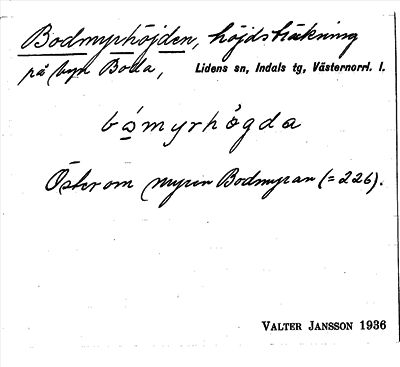 Bodmyrhöjden, höjdsträkning
på byn Boda, Lidens sn, Indals tg, Västernorrl. l.
bo̲myrhøgda
Öster om myren Bodmyran (= 226).
VALTER JANSSON 1936